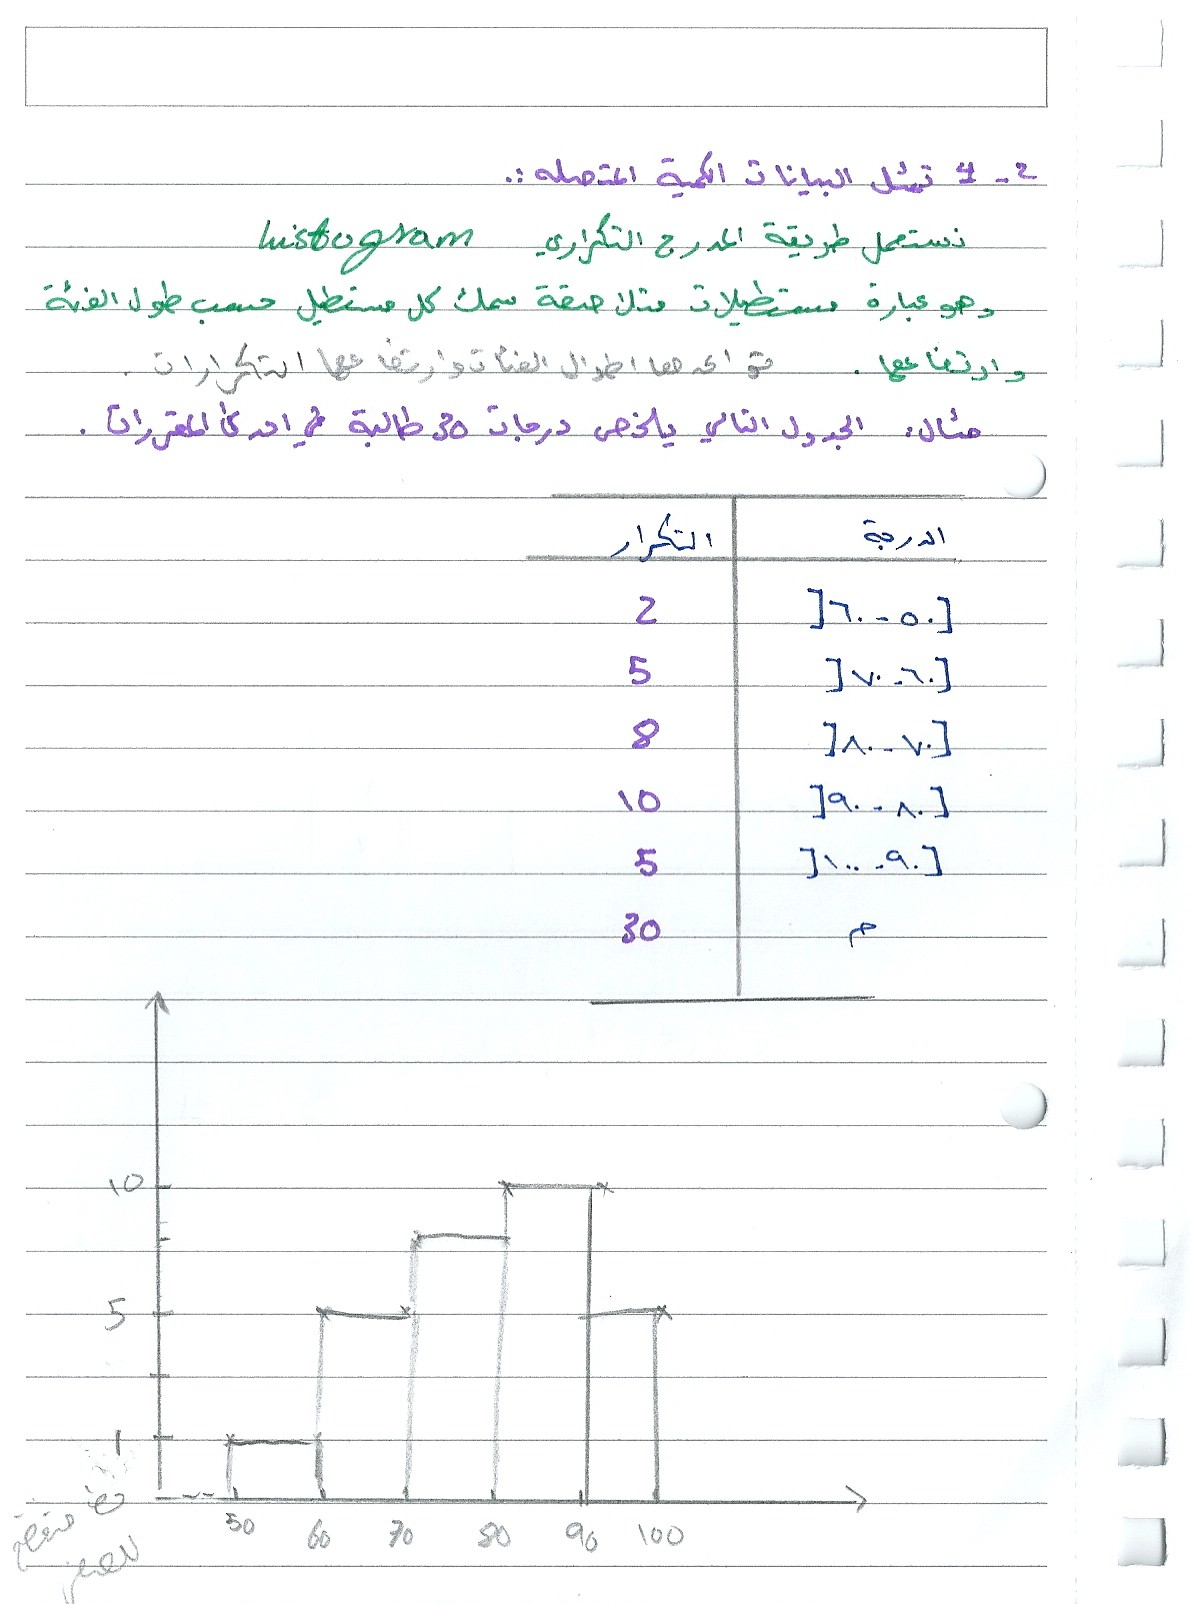 2-4 تمثل البيانات الكمية المتصله :.
نستعمل طريقة المدرج التكراري histogram
وهو عبارة مستطيلات متلاصقة سمك كل مستطيل حسب طول الفئة
وارتفاعها . قواعدها اطوال الفئات وارتفاعها التكرارات .
مثال: الجدول التالي يلخص درجات 30 طالبة في احدى المقررات .
الدرجة التكرار
[٥٠-٦٠[ 2
[٦٠-٧٠[ 5
[٧٠-٨٠[ 8
[٨٠-٩٠[ 10
[٩٠-١٠٠[ 5
م 30
10
5
1
50 60 70 80 90 100